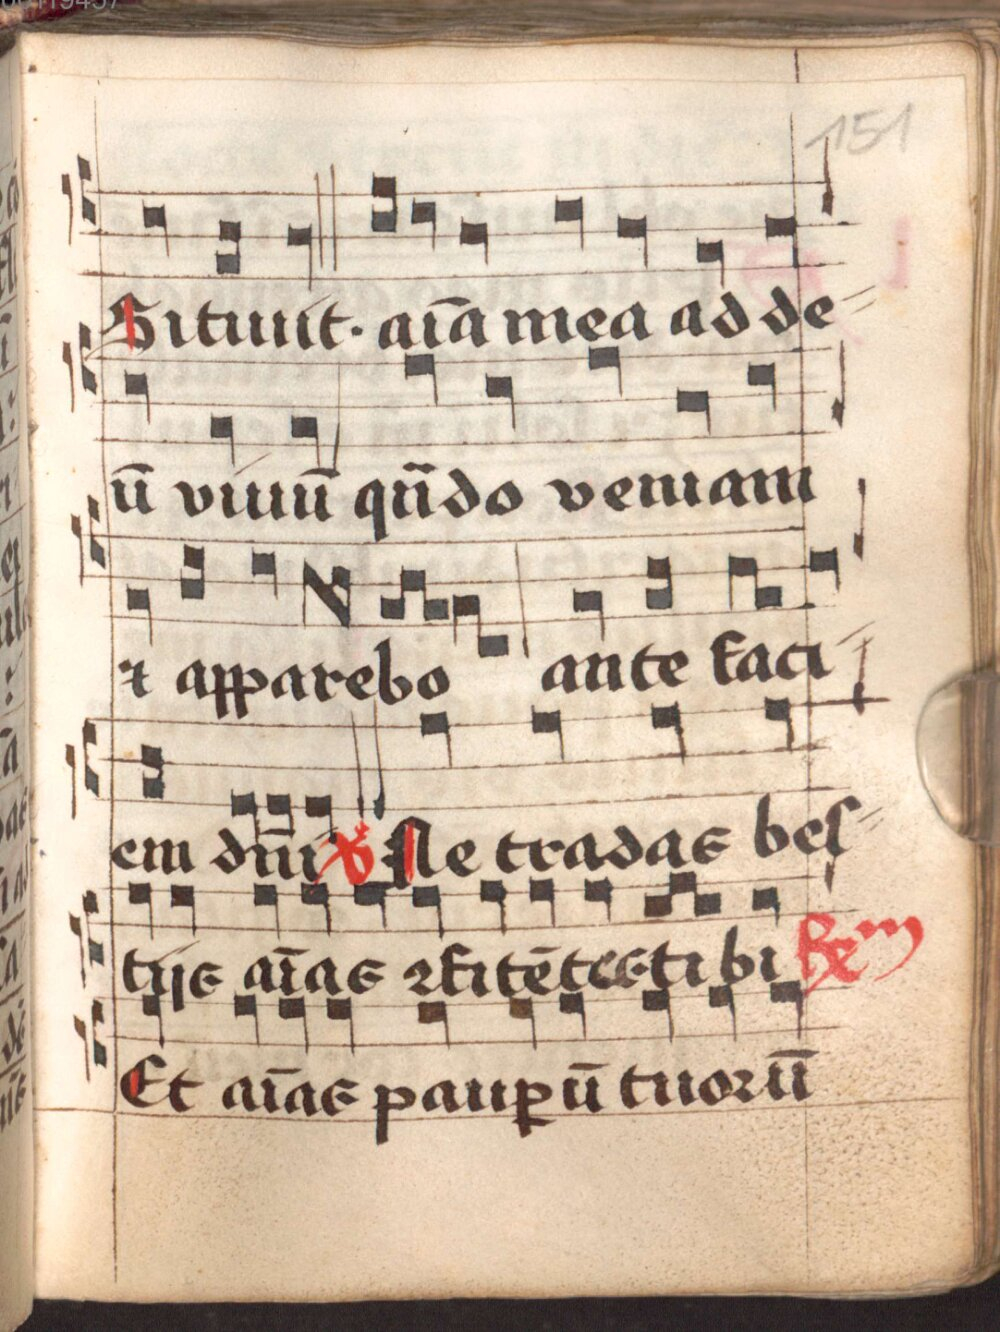 151
Sitiuit· aīa mea ad de
ū viuū qn̄do veniam
⁊ apparebo ante faci
em dn̄i ℣ Ne tradas bes
tijs aīas ↄfitētes tibi Rm
Et aīas paup̲ū tuorū